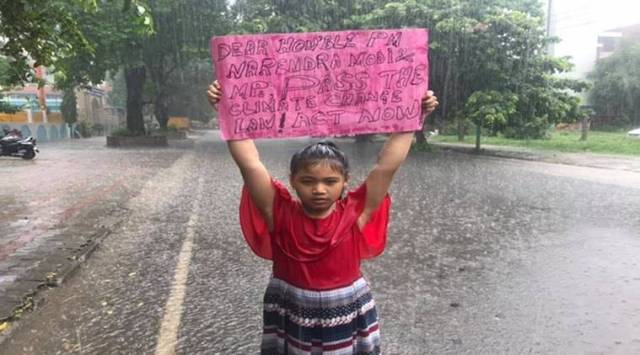 DEAR HON'BLE PM
NARENDRA MODI &
MP PASS THE
CLIMATE CHANGE
LAW! ACT NOW